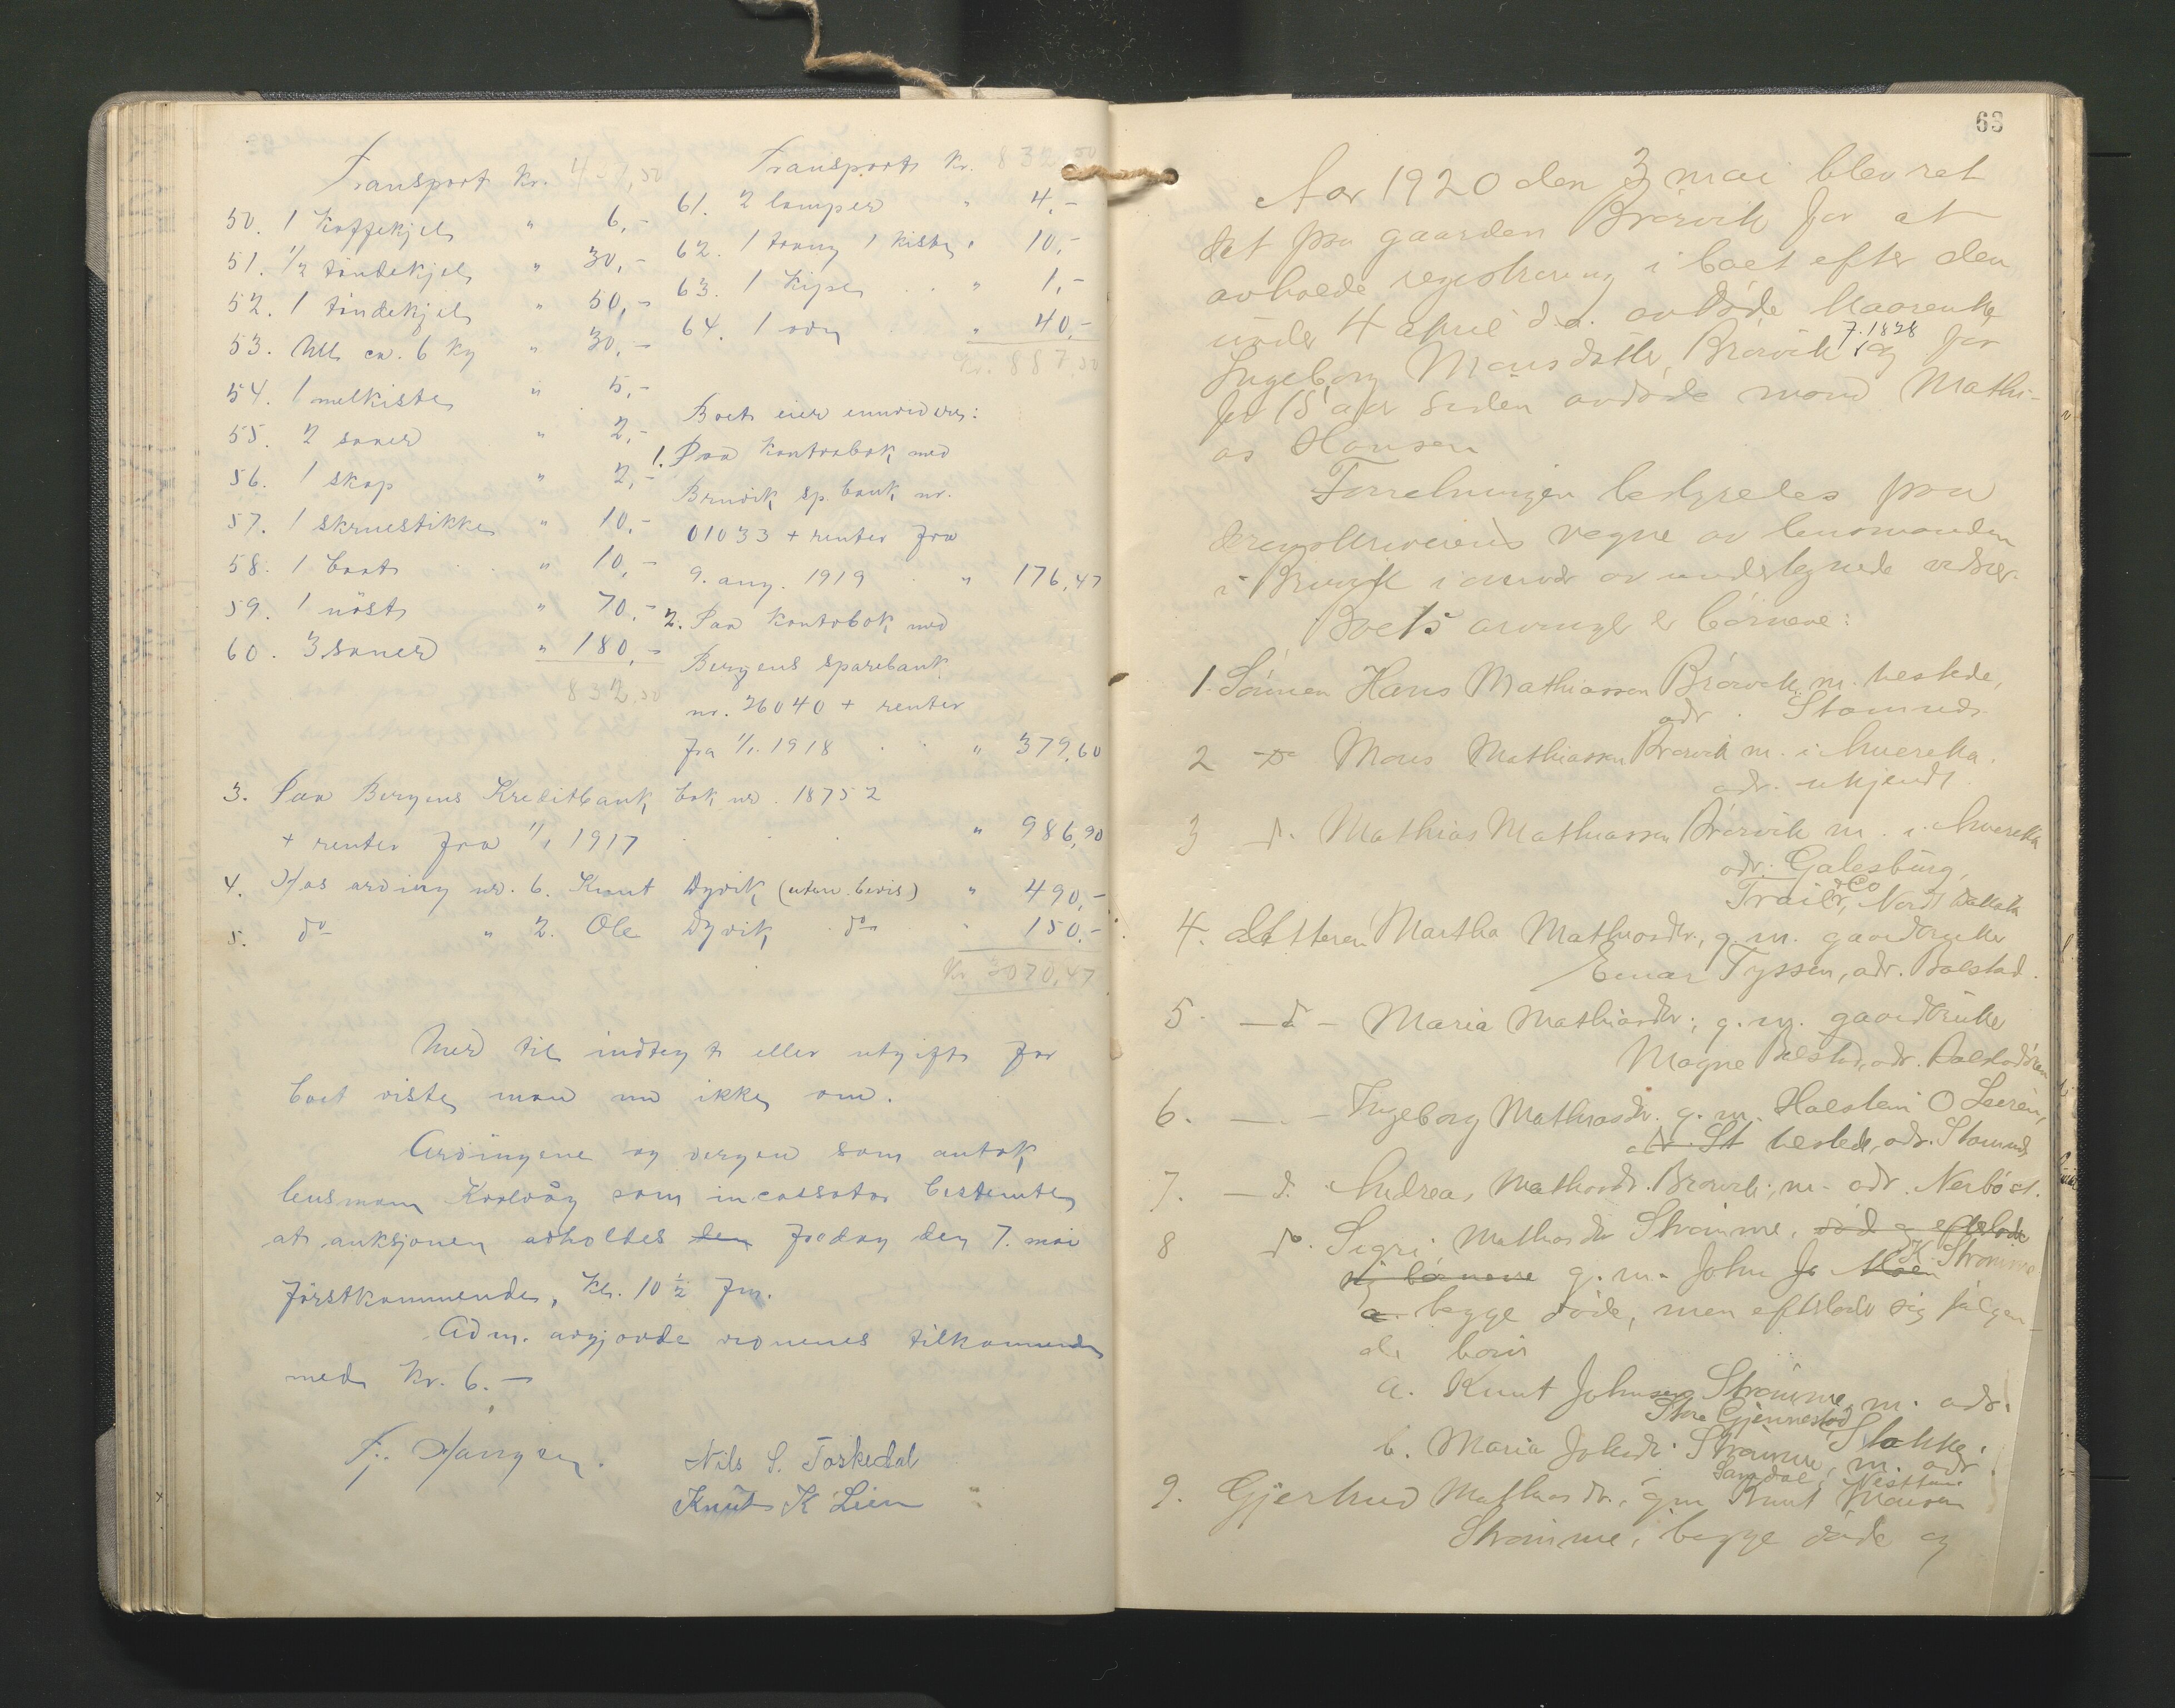 Transport kr. 4
50. 1 kaffekjel " 6,-
51. 1/2 töndekjel " 30,-
52. 1 töndekjel " 50,-
53. Ull ca. 6 kg " 30,-
54. 1 melkiste " 5,-
55. 2 saaer " 2,-
56. 1 skap " 2,-
57. 1 skruestikke " 10,-
58. 1 baat " 10,-
59. 1 nöst " 70,-
60. 3 sauer " 180,-
832,50
Transport kr. 832,50
61. 2 lamper " 4,-
62. 1 kiste " 10,-
63. 1 kipe " 1,-
64. 1 " 40,-
Kr. 887,50
Boet eier
1. Paa kontrabok med
Bruvik sp. bank nr.
01033 + renter fra
9. aug. 1919 " 176,47
2. Paa kontrabok med
Bergens sparebank
nr. 26040 + renter
fra 1/1. 1918 " 379,60
3. Paa Bergens Kreditbank bok nr. 18752
+ renter fra 1/1 1917 " 986,90
4. Hos arving nr. 6. Knut Dyvik (uten bevis) " 490,-
5. do " 2. Ole Dyvik do " 150,-
Kr. 3070,47
Mer til indtegt eller utgift for
boet viste man nu ikke om.
Arvingene og vergen som antok
lensmann som incassator bestemte
at auksjonen avholtes den fredag den 7. mai
förstkommende, kl. 10 1/2 fm.
Adm. avgjorde vidnenes tilkommende
med Kr. 6.-
Nils S. Toskedal
Knut K Lien
63
Aar 1920 den 3 mai blev ret
det paa gaarden Brørvik for at
avholde registrering i boet efter den
under 4 april d.a. avdöde
Ingeborg Monsdatter, Brørvik f. 1828 og for
for 15 aar siden avdöde mand Mathi-
as Hansen
Forretningen bestyredes paa
sorenskriverens vegne av lensmanden
i Bruvik i nærvær av undertegnede vidner.
Boets arvinger er börnene:
1. Sönnen Hans Mathiassen Brørvik, m. tilstede,
adr. Stamnes
2 do Mons Mathiassen Brørvik m. i Amerika,
adr. ukjendt
3 d. Mathias Mathiassen Brørvik m. i Amerika
adr. Galesburg,
Traill Co, North Dakota
4. datteren Martha Mathiasdtr., g. m. gaardbruker
Einar Tyssen, adr. Bolstad.
5. - d - Maria Mathiasdtr., g. m. gaardbruker
Magne Bolstad, adr. Bolstadören
6. - - Ingeborg Mathiasdtr. g. m. Halstein O Leiren,
adr. St tilstede, adr. Stamnes
7. - d. Andrea, Mathiasdtr. Brørvik, m. adr. Nerböst.
8 do. Sigri Mathiasdtr Strömme, död og efterlot
sig börnene g. m. John K. Strömme
a. begge döde, men efterlot sig fölgen-
de barn
a. Knut Johnsen Strömme, m. adr.
Store Gjennestad, Stokke.
b. Maria Johnsdtr. Strömme, m. adr.
Sandal, Nesttun
9. Gjertrud Mathiasdtr., gm Knut Monsen
Strömme, begge döde og